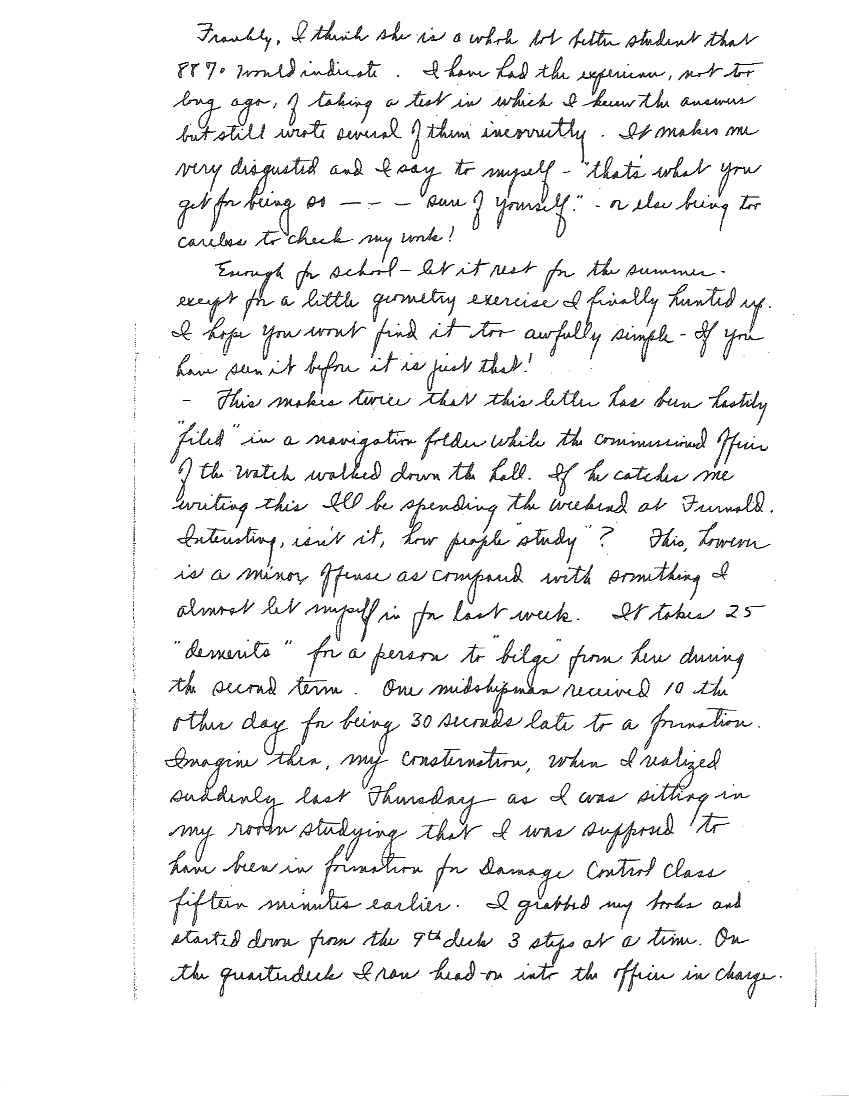 Frankly, I think she is a whole lot better student that
88% would indicate. I have had the experience, not too
long ago, of taking a test in which I knew the answers
but still wrote several of them incorrectly. It makes me
very disgusted and I say to myself - "that's what you
get for being so - - - sure of yourself." - or else being too
careless to check my work!
Enough for school - let it rest for the summer -
except for a little geometry exercise I finally hunted up.
I hope you wont find it too awfully simple - If you
have seen it before it is just that!
- This makes twice that this letter has been hastily
"filed" in a navigation folder while the commissioned officer
of the watch walked down the hall. If he catches me
writing this I'll be spending the weekend at Furnald.
Interesting, isn't it, how people "study"? This, however
is a minor offense as compared with something I
almost let myself in for last week. It takes 25
"demerits" for a person to "bilge" from here during
the second term. One midshipman received 10 the
other day for being 30 seconds late to a formation.
Imagine then, my consternation, when I realized
suddenly last Thursday as I was sitting in
my room studying that I was supposed to
have been in formation for Damage Control class
fifteen minutes earlier. I grabbed my books and
started down from the 9th deck 3 steps at a time. On
the quarterdeck I ran head-on into the officer in charge.